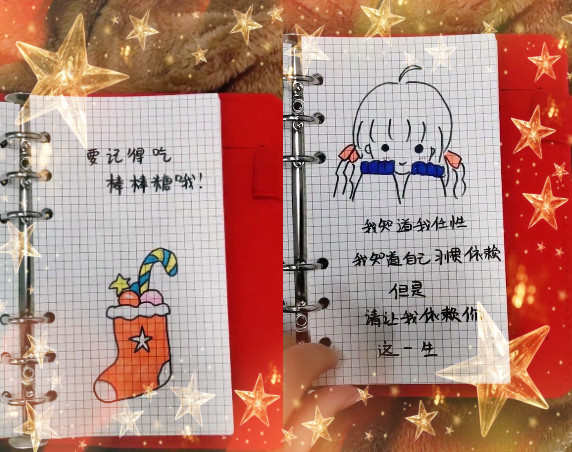 要记得吃
棒棒糖哦!
我知道我任性
我知道自己习惯依赖
但是
请让我依赖你
这一生